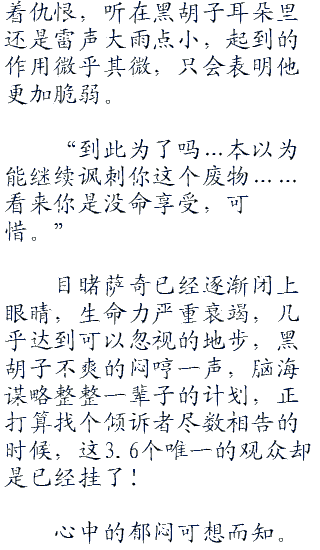 着仇恨，听在黑胡子耳朵里
还是雷声大雨点小，起到的
作用微乎其微，只会表明他
更加脆弱。
“到此为了吗…本以为
能继续讽刺你这个废物……
看来你是没命享受，可
惜。”
目睹萨奇已经逐渐闭上
眼睛，生命力严重衰竭，几
乎达到可以忽视的地步，黑
胡子不爽的闷哼一声，脑海
谋略整整一辈子的计划，正
打算找个倾诉者尽数相告的
时候，这3.6个唯一的观众却
是已经挂了！
心中的郁闷可想而知。